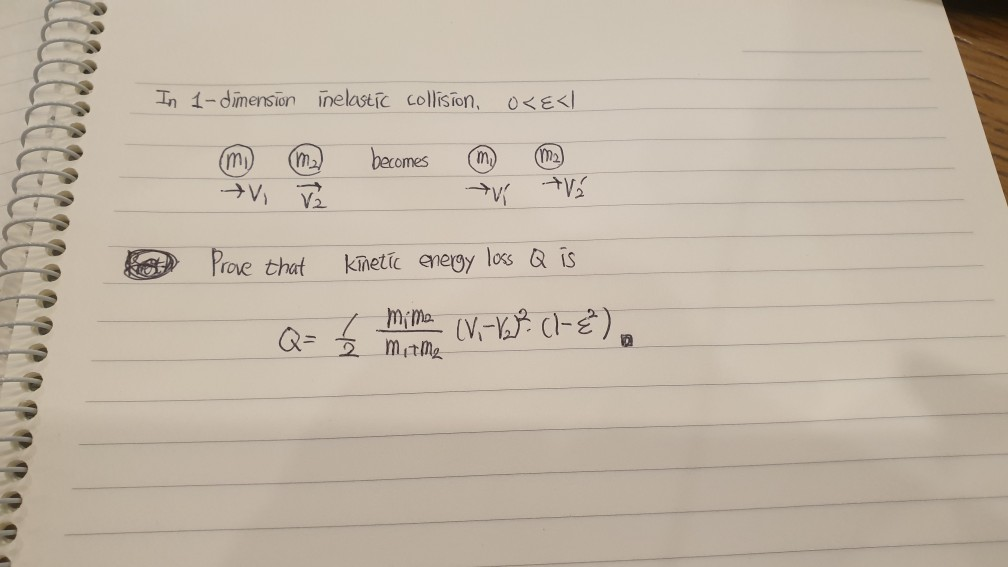 In 1-dimension inelastic collision, 0<ε<1
m₁ m₂ becomes m₁ m₂
→V₁ V₂ →V₁' →V₂'
Prove that kinetic energy loss Q is
Q= 1/2 m₁m₂/m₁+m₂ (V₁-V₂)²·(1-ε²).